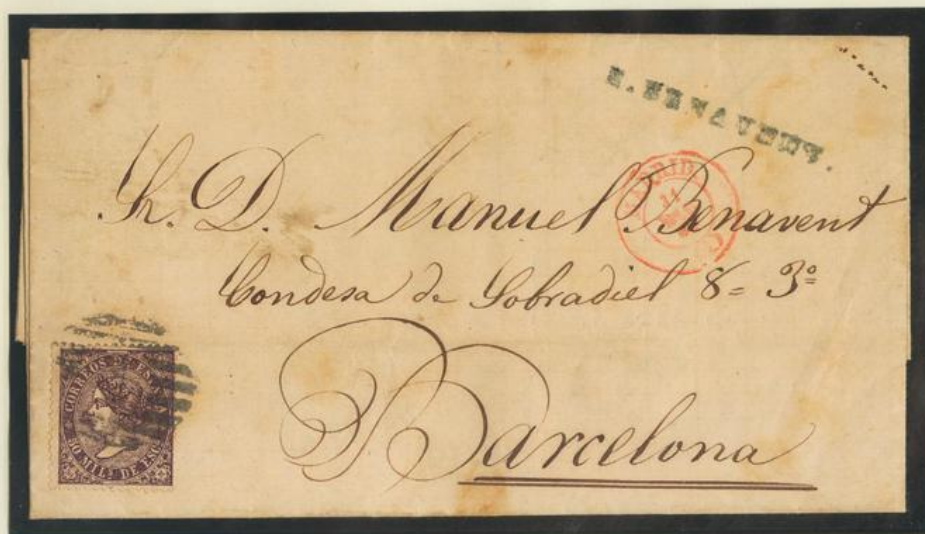 BENAVENT.
MADRID
Sr. D. Manuel Benavent
Condesa de Sobradiel 8= 3º
Barcelona
CORREOS DE ES
50 MIL.S DE ESC